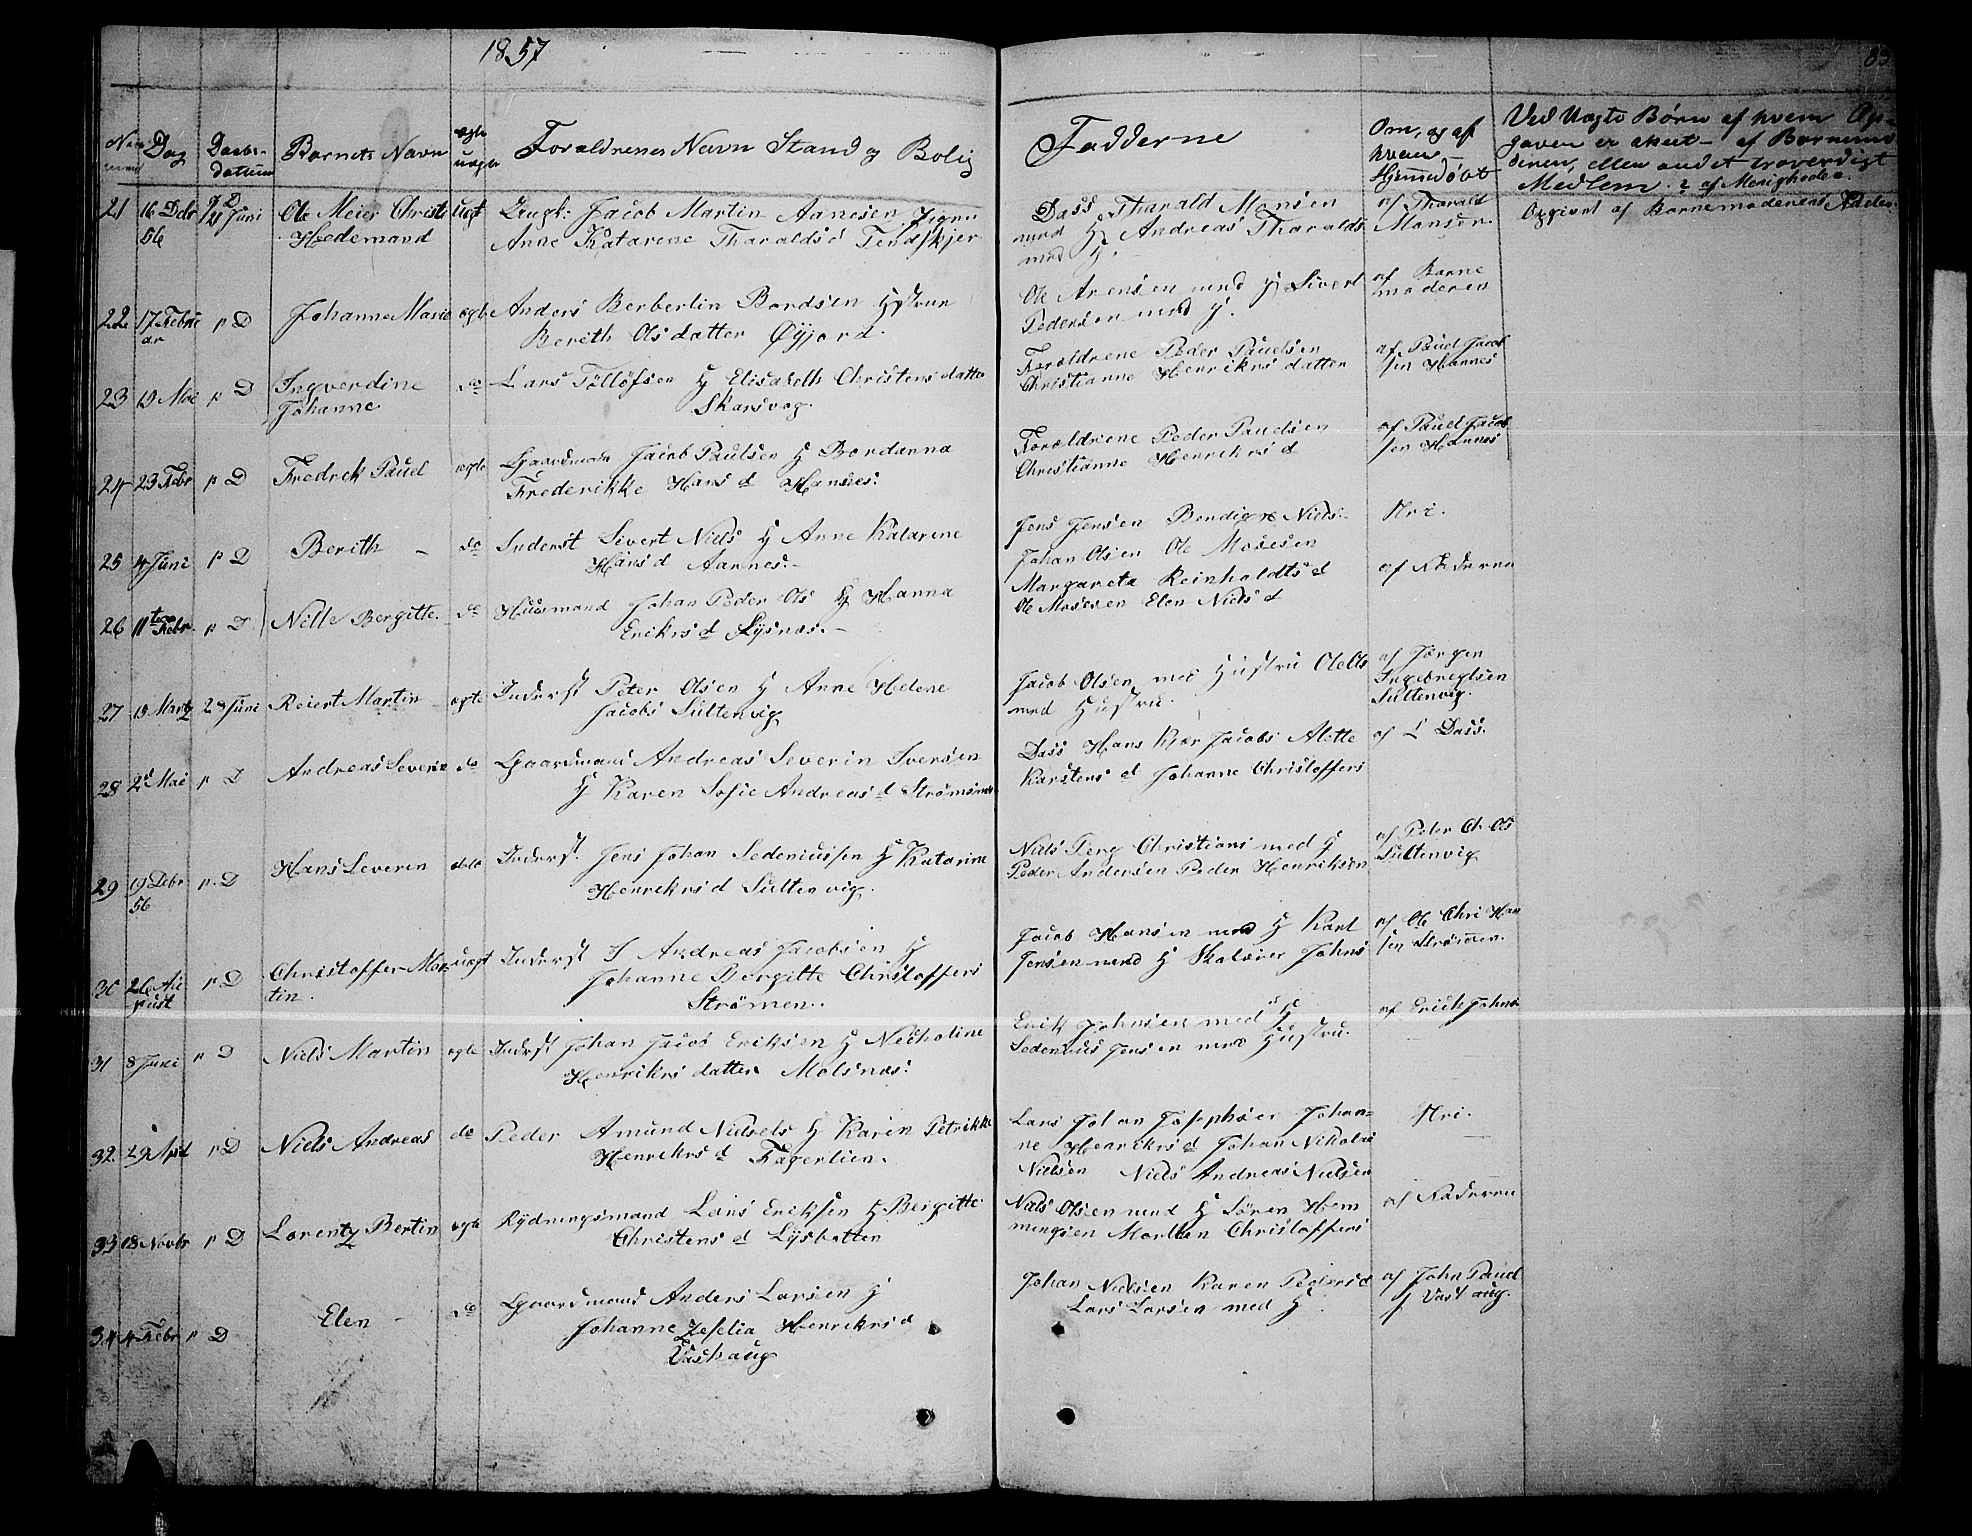 1857
Dag Daabsdatum Barnets Navn ægte uægte Forældrenes Navn Stand og Bolig
Fadderne Om, og af hvem Hjemmedøbt Ved Uægte Børn af hvem Op-
gaven er skeet - af Barnemo
deren, eller andet troværdigt
Medlem af Menigheden
21 16 Dcbr 56 21 Juni Ole Meier Christ Hedemand Uægt Ungk: Jacob Martin Aanesen Pigen
Anne Katarine Tharalds d Tendskjer
Dass Tharald Monsen
med H Andreas Tharalds
med H.
af Tharald
Monsen.
Opgivet af Barnemoderens
22 17 Februar D Johanna Marie ægte Anders Berberlin Bordsen Hustrue
Berith Olsdatter Øyjord.
Ole Arensen med H Sivert
Pedersen med H.
af Barne
moderen
23 19 Mai D Ingverdine Johanne do Lars Tølløfsen H Elisabeth Christensdatter
Skarsvog.
Forældrene Peder Paulsen
Christianne Henriks datter
af Paul Jacob
sen Hannes
24 23 Febr D Fredrek Paul ægte Gaardmand Jacob Paulsen H Bordanna
Frederikke Hans d Hansnes.
Forældrene Peder Paulsen
Christianne Henriks d
af Paul Jacob
sen Hannes
25 4 Juni D Berith - do Inderst Sivert Niels H Anne Katarine
Hans d Aarnes. -
Jens Jensen Bendigte Niels
Johan Olsen Ole Mosesen
Nei.
26 11te Febr. D Nille Bergitte. do Huusmand Johan Peder Ols H Hanna
Eriks d Lysnæs. -
Margareta Reinholdts d
Ole Mosesen Elen Niels d
af Faderen
27 19 Marts 28 Juni Reiert Martin ægte Inderst Peter Olsen H Anne Helene
Jacobs Sultenvig
Jacob Olsen med Hustru Ole Ols
med Hustru.
af Jørgen
Ingebregtsen
Sultenvig.
28 2d Mai D Andreas Severin do Gaardmand Andreas Severin Iversen
H Karen Sofie Andreas d Strømsnæs
Dass Hans Kjær Jacobs Alette
Karstens d Johanne Christoffers
af Dass.
29 19 Debr 56 D Hans Severin do Inderst. Jens Johan Sedeniussen H Katarine
Henriks d Sultenvig.
Niels Berg Christians med H
Peder Andersen Peder Henriksen
af Peter Ch Ols
Sultenvig
30 26 August D Christoffer Martin. uægt Inderst I Andreas Jacobsen H
Johanne Bergitte Christoffers
Strømen.
Jacob Hansen med H Karl
Jensen med H Johns
af Ole Chri Han
sen Strømen.
31 8 Juni D Niels Martin ægte Inderst Johan Jacob Eriksen H Necholine
Henriks datter Molsnæs.
Erik Johnsen med H
Sedenius Jensen med Hustru.
af Erich Johns
32. 29 April D Niels Andreas do Peder Amund Nielsels H Karin Petrikke
Henriks d Fagerlien.
Lars Johan Josephsen Johan=
ne Henriks d Johan Nikolai
Nielsen Niels Andreas Nielsen
Nei.
33 18 Novbr D Lorentz Bertin ægte Rydningsmand Lars Eriksen H Bergitte
Christens d Lysbotten
Niels Olsen med H Søren Hem
mingsen Morten Christoffers
af Faderen
34 4 Febr D Elen - do Gaardmand Anders Larsen H
Johanne Zefelia Henriks d
Vashaug
Johan Nielsen Karen Peders d
Lars Larsen med H
af John Paul
Vashaug.